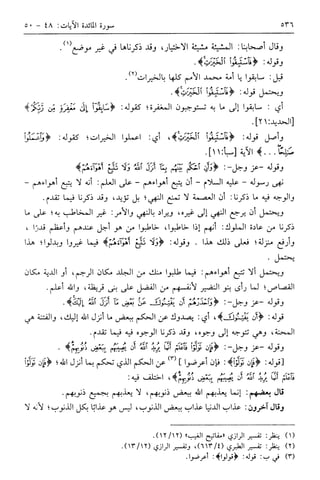 ٥٣٦
سورة المائدة الآيات: ٤٨ - ٥٠
وقال أصحابنا: المشيئة مشيئة الاختيار، وقد ذكرناها في غير موضع(١).
وقوله: ﴿فَاسْتَبِقُوا الْخَيْرَاتِ﴾.
قيل: سابقوا يا أمة محمد الأمم كلها بالخيرات(٢).
ويحتمل قوله: ﴿فَاسْتَبِقُوا الْخَيْرَاتِ﴾.
أي : سابقوا إلى ما به تستوجبون المغفرة؛ كقوله: ﴿سَابِقُوٓا إِلَىٰ مَغْفِرَةٍ مِّن رَّبِّكُمْ﴾
[الحديد:٢١].
وأصل قوله: ﴿فَاسْتَبِقُوا الْخَيْرَاتِ﴾، أي: اعملوا الخيرات؛ كقوله: ﴿وَاعْمَلُوا
صَالِحًا ...﴾ الآية [سبأ:١١].
وقوله -عز وجل-: ﴿وَأَنِ احْكُم بَيْنَهُم بِمَآ أَنزَلَ اللَّهُ وَلَا تَتَّبِعْ أَهْوَآءَهُمْ﴾
نهى رسوله - عليه السلام - أن يتبع أهواءهم - على العلم: أنه لا يتبع أهواءهم -
والوجه فيه ما ذكرنا: أن العصمة لا تمنع النهي؛ بل تزيد، وقد ذكرنا فيما تقدم.
ويحتمل أن يرجع النهي إلى غيره، ويراد بالنهي والأمر: غير المخاطب به؛ على ما
ذكرنا من عادة الملوك: أنهم إذا خاطبوا، خاطبوا من هو أجل عندهم وأعظم قدرًا ،
وأرفع منزلة؛ فعلى ذلك هذا . وقوله: ﴿وَلَا تَتَّبِعْ أَهْوَآءَهُمْ﴾ فيما غيروا وبدلوا؛ هذا
يحتمل .
ويحتمل ألا تتبع أهواءهم: فيما طلبوا منك من الجلد مكان الرجم، أو الدية مكان
القصاص؛ لما رأى بنو النضير لأنفسهم من الفضل على بنى قريظة، والله أعلم.
وقوله -عز وجل-: ﴿وَاحْذَرْهُمْ أَن يَفْتِنُوكَ عَنۢ بَعْضِ مَآ أَنزَلَ اللَّهُ إِلَيْكَ﴾.
قوله: ﴿أَن يَفْتِنُوكَ﴾، أي: يصدوك عن الحكم ببعض ما أنزل الله إليك، والفتنة هي
المحنة، وهي تتوجه إلى وجوه، وقد ذكرنا الوجوه فيه فيما تقدم.
وقوله -عز وجل-: ﴿فَإِن تَوَلَّوْا فَاعْلَمْ أَنَّمَا يُرِيدُ اللَّهُ أَن يُصِيبَهُم بِبَعْضِ ذُنُوبِهِمْ﴾ .
[قوله: ﴿فَإِن تَوَلَّوْا﴾: فإن أعرضوا ](٣) عن الحكم الذي تحكم بما أنزل الله؛ ﴿فَإِن تَوَلَّوْا
فَاعْلَمْ أَنَّمَا يُرِيدُ اللَّهُ أَن يُصِيبَهُم بِبَعْضِ ذُنُوبِهِمْ﴾، اختلف فيه:
قال بعضهم: إنما يعذبهم الله ببعض ذنوبهم، لا يعذبهم بجميع ذنوبهم.
وقال آخرون: عذاب الدنيا عذاب ببعض الذنوب، ليس هو عذابًا بكل الذنوب؛ لأنه لا
(١) ينظر: تفسير الرازي «مفاتيح الغيب» (١٢/١٢).
(٢) ينظر: تفسير الطبري (٦١٣/٤)، وتفسير الرازي (١٣/١٢)
(٣) في ب: قوله: ﴿تولوا﴾: أعرضوا.